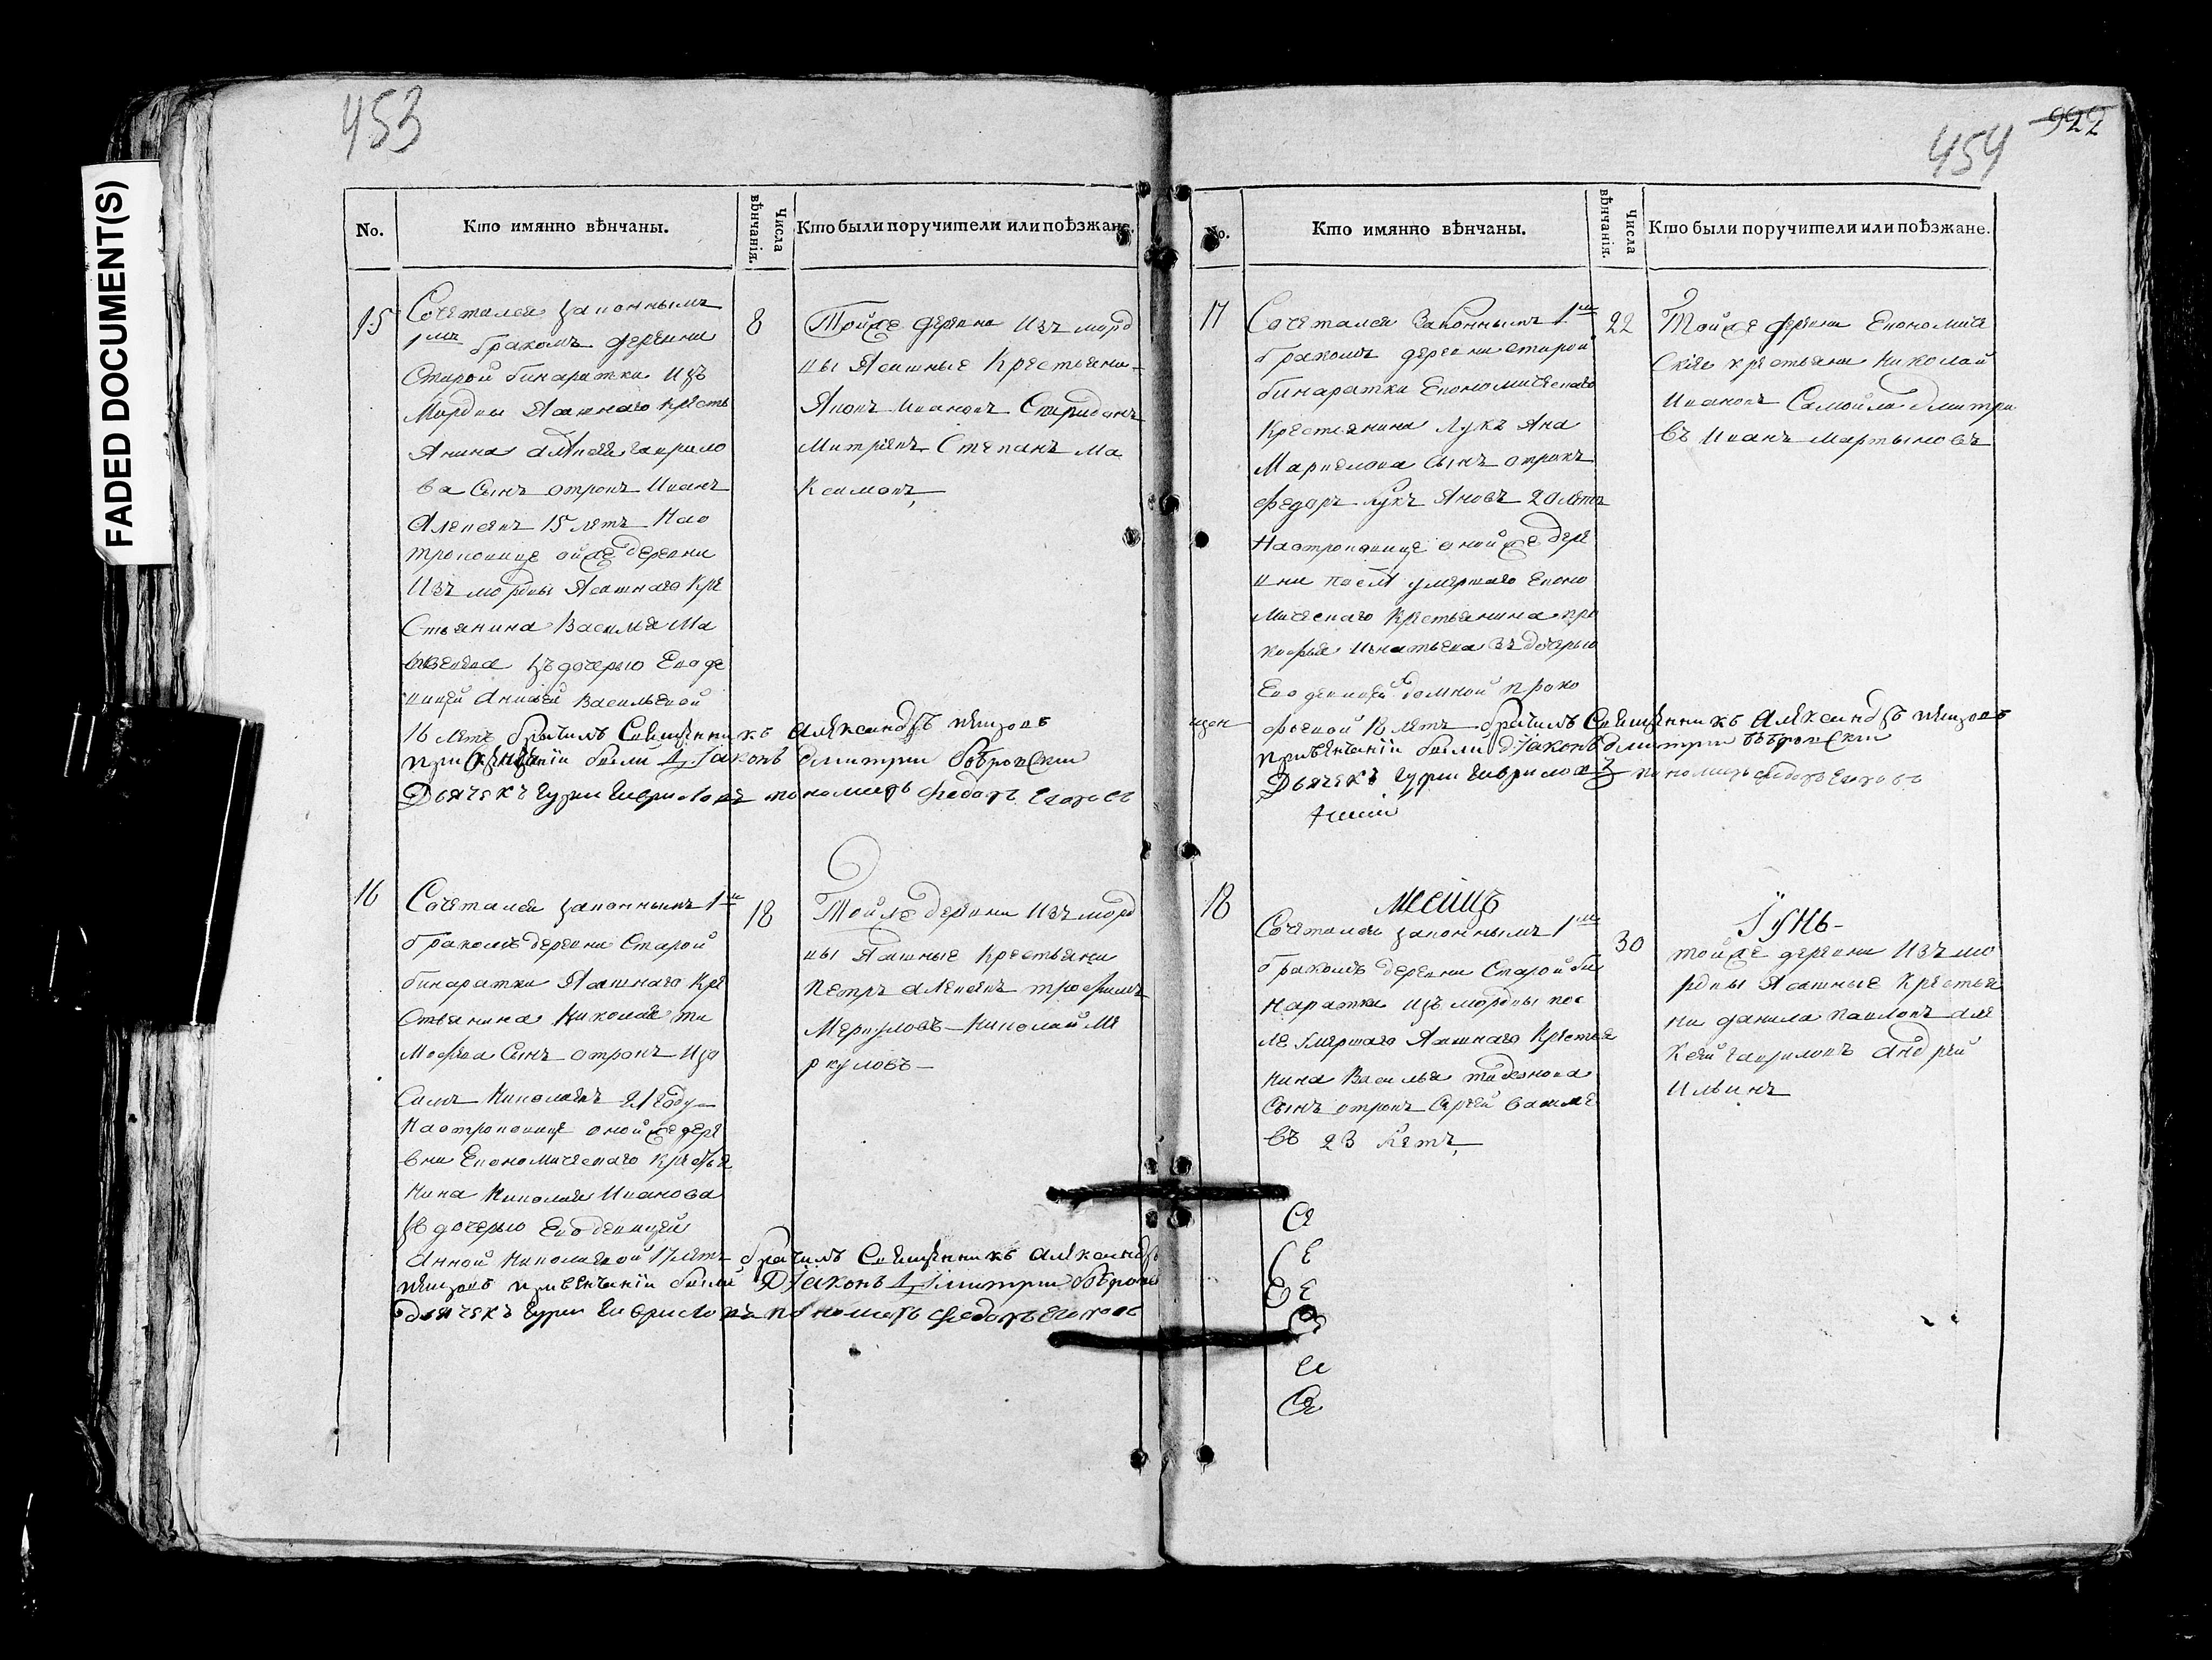 453
No.
Кто имянно вѣнчаны.
Числа вѣнчанія.
Кто были поручители или поѣзжане.
15
Сочетался законнымъ
1мъ бракомъ деревни
Старой бинаратки изъ
Мордвы Ясашнаго кресть
янина алѣксѣя гаврило
ва Сынъ отрокъ Иванъ
Алексѣевъ 15 летъ На о
троковице ойже деревни
Изъ мордвы Ясашнаго Кре
стьянина Василья Ма
зъ дочерью Ево де
вицей Васильевой
16 летъ брачилъ Священникъ Александръ
при венчаніи были Діаконъ Дмитрии бобровскии
Дьячекъ гурии гавриловъ пономарь федоръ Егоровъ
8
Тойже деревни Изъ морд
вы Ясашные Крестьяни
Яковъ Ивановъ Спиридонъ
Митріевъ Степанъ Ма
ксимовъ
16
Сочетался законнымъ 1м
бракомъ деревни Старой
бинаратки Ясашнаго Кре
стьянина Николая ти
мофѣева Сынъ отрокъ Изо
симъ Николаевъ 21 году
На отроковице оной же дере
вни Економическаго крестья
нина Николая Иванова
зъ дочерью Ево девицей
Анной Николаевой 17 летъ брачилъ Священникъ Александръ
при венчаніи были Діаконъ Дмитрии бобровс
дьячекъ гурии гавриловъ пономарь федоръ Егоровъ
18
Тойже деревни Изъ морд
вы Ясашные Крестьяни
Петръ алексѣевъ трофимъ
Меркуловъ Николай Ме
ркуловъ
922
454
No.
Кто имянно вѣнчаны.
Числа вѣнчанія.
Кто были поручители или поѣзжане.
17
Сочетался Законнымъ 1м
бракомъ деревни старой
бинаратки Економическаго
Крестьянина Лукъ Яна
Маркелова Сынъ отрокъ
федоръ лукъ Яновъ 20 летъ
На отроковице оной же дере
вни послѣ умершаго Еконо
мическаго Крестьянина про
кофья Игнатьева зъ дочерью
Ево девицей домной проко
фьевой летъ брачилъ Священникъ Александръ
при венчаніи были діаконъ дмитрии бобровскии
Дьячекъ гурии гавриловъ пономарь федоръ Егоровъ
22
Тойже деревни Економиче
ские крестьяни Николай
Ивановъ Самойла дмитрие
въ Иванъ Мартыновъ
18
Месецъ
Іунь
Сочетался законнымъ 1м
бракомъ деревни Старой би
наратки изъ мордвы пос
ле Умершаго Ясашнаго Крестья
нина Василья тиханова
Сынъ отрокъ Сергей василье
въ 23 Летъ
30
тойже деревни Изъ мо
рдвы Ясашные Крестья
ни данила павловъ але
ксѣй гавриловъ андрей
Ильинъ